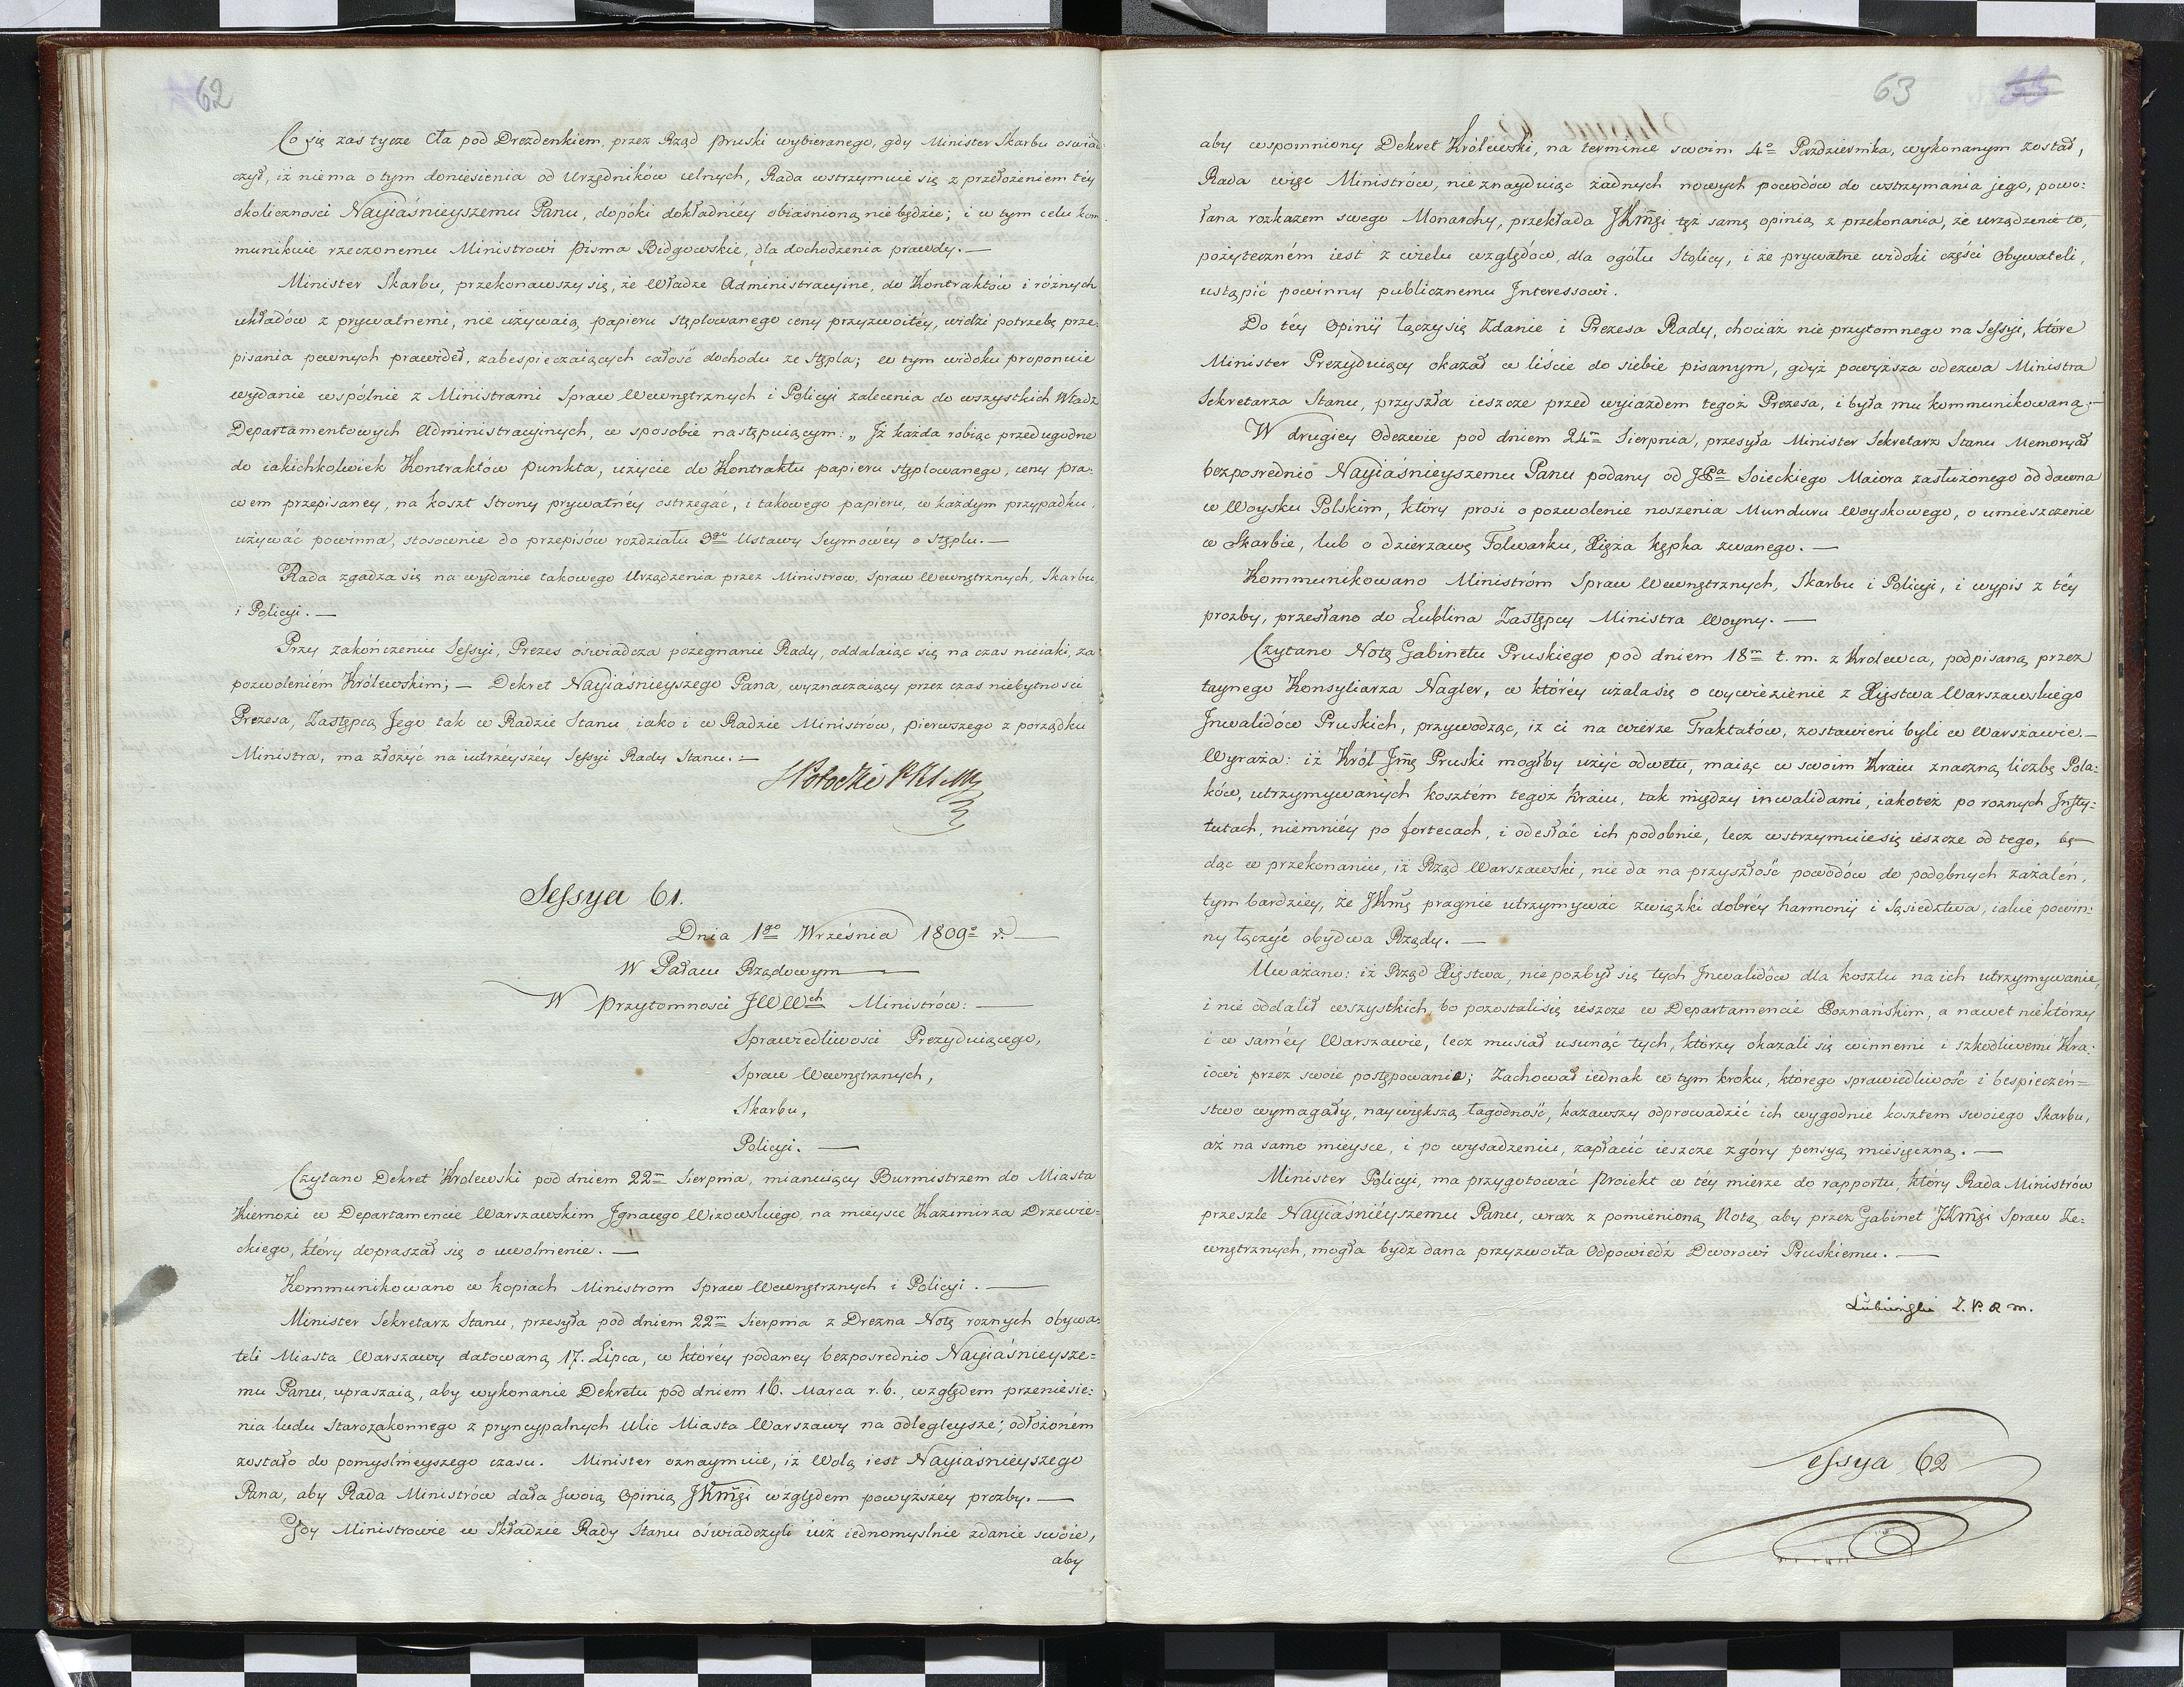 62
Co się zas tycze Cła pod Drezdenkiem, przez Rząd Pruski wybieranego, gdy Minister Skarbu oswiad
czył, iż niema o tym doniesienia od Urzędników celnych, Rada wstrzymuie się z przełożeniem téy
okolicznosci Nayiaśnieyszemu Panu, dopóki dokładniéy obiaśnioną nie będzie; i w tym celu kom
munikuie rzeczonemu Ministrowi pisma Bidgowskie, dla dochodzenia prawdy. —
Minister Skarbu, przekonawszy się, że Władze Administracyine, do Kontraktów i różnych
układów z prywatnemi, nie używaią papieru stęplowanego ceny przyzwoitéy, widzi potrzebę prze-
pisania pewnych prawideł, zabespieczaiących całość dochodu ze stępla; w tym widoku proponuie
wydanie wspólnie z Ministrami Spraw Wewnętrznych i Policyi zalecenia do wszystkich Władz
Departamentowych Administracyinych, w sposobie następuiącym: „ Iż każda robiąc przedugodne
do iakichkolwiek Kontraktów punkta, użycie do Kontraktu papieru stęplowanego, ceny pra-
wem przepisaney, na koszt Strony prywatnéy ostrzegać, i takowego papieru, w każdym przypadku,
używać powinna, stosownie do przepisów rozdziału 3go Ustawy Seymowéy o stęplu. —
Rada zgadza się na wydanie takowego Urządzenia przez Ministrów, Spraw Wewnętrznych, Skarbu,
i Policyi. —
Przy zakończeniu Sessyi, Prezes oświadcza pożegnanie Rady, oddalaiąc się na czas nieiaki, za
pozwoleniém Królewskim; — Dekret Nayiaśnieyszego Pana, wyznaczaiący przez czas niebytnosci
Prezesa, Zastępcą Jego tak w Radzie Stanu, iako i w Radzie Ministrów, pierwszego z porządku
Ministra, ma złożyć na iutrzéyszéy Sessyi Rady Stanu. —
Sessya 61.
Dnia 1go Września 1809o r. —
W Pałacu Rządowym —
W Przytomnosci JWWch Ministrów: —
Sprawiedliwosci Prezyduiącego,
Spraw Wewnętrznych,
Skarbu,
Policyi. —
Czytano Dekret Krolewski pod dniem 22m Sierpnia, mianuiący Burmistrzem do Miasta
Kiernozi w Departamencie Warszawskim Ignacego Wizowskiego, na mieysce Kazimirza Drzewie-
ckiego, który dopraszał się o uwolnienie. —
Kommunikowano w kopiach Ministrom Spraw Wewnętrznych i Policyi. —
Minister Sekretarz Stanu, przesyła pod dniem 22m Sierpnia z Drezna Notę roznych obywa-
teli Miasta Warszawy datowaną 17. Lipca, w któréy podaney bezposrednio Nayiaśnieysze-
mu Panu, upraszaią, aby wykonanie Dekretu pod dniem 16. Marca r. b., względem przeniesie-
nia ludu Starozakonnego z pryncypalnych Ulic Miasta Warszawy na odlegleysze; odłożoném
zostało do pomyslnieyszego czasu. Minister oznaymuie, iż Wolą iest Nayiaśnieyszego
Pana, aby Rada Ministrów dała swoią Opinią JKmci względem powyższéy prozby. —
Gdy Ministrowie w Składzie Rady Stanu oświadczyli iuż iednomyslnie zdanie swoie,
aby
63
aby wspomniony Dekret Królewski, na terminie swoim 4o Pazdziernika, wykonanym został,
Rada więc Ministrów, nie znayduiąc żadnych nowych powodów do wstrzymania jego, powo-
łana rozkazem swego Monarchy, przekłada JKmci tęż samę opinią z przekonania, że urządzenie to,
pożyteczném iest z wielu względów, dla ogółu Stolicy, i że prywatne widoki części Obywateli,
ustąpić powinny publicznemu Interessowi.
Do téy Opinii łączy się Zdanie i Prezesa Rady, chociaż nie przytomnego na Sessyi, które
Minister Prezyduiący okazał w liście do siebie pisanym, gdyż powyższa odezwa Ministra
Sekretarza Stanu, przyszła ieszcze przed wyiazdem tegoż Prezesa, i była mu kommunikowaną. —
W drugiey Odezwie pod dniem 24m Sierpnia, przesyła Minister Sekretarz Stanu Memoryał
bezposrednio Nayiaśnieyszemu Panu podany od JPa Soieckiego Maiora zasłużonego od dawna
w Woysku Polskim, który prosi o pozwolenie noszenia Munduru Woyskowego, o umieszczenie
w Skarbie, lub o dzierzawę Folwarku, Xięża kępka zwanego. —
Kommunikowano Ministróm Spraw Wewnętrznych, Skarbu i Policyi, i wypis z téy
prozby, przesłano do Lublina Zastępcy Ministra Woyny. —
Czytano Notę Gabinetu Pruskiego pod dniem 18m t. m. z Krolewca, podpisaną przez
taynego Konsyliarza Nagler, w któréy użala się o wywiezienie z Xięstwa Warszawskiego
Inwalidów Pruskich, przywodząc, iż ci na wierze Traktatów, zostawieni byli w Warszawie. —
Wyraża: iż Król Jmć Pruski mogłby użyć odwetu, maiąc w swoim Kraiu znaczną liczbę Pola-
ków, utrzymywanych kosztém tegoż Kraiu, tak między inwalidami, iakoteż po roznych Insty-
tutach, niemniéy po fortecach, i odesłać ich podobnie, lecz wstrzymuie się ieszcze od tego, bę-
dąc w przekonaniu, iż Rząd Warszawski, nie da na przyszłość powodów do podobnych zażaleń,
tym bardziey, że JKmć pragnie utrzymywać związki dobréy harmonii i sąsiedztwa, iakie powin-
ny łączyć obydwa Rządy. —
Uważano: iż Rząd Xięstwa, nie pozbył się tych Inwalidów dla kosztu na ich utrzymywanie,
i nie oddalił wszystkich, bo pozostali się ieszcze w Departamencie Poznańskim, a nawet niektórzy
i w saméy Warszawie, lecz musiał usunąć tych, którzy okazali się winnemi i szkodliwemi Kra-
iowi przez swoie postępowanie; Zachował iednak w tym kroku, którego sprawiedliwość i bespieczeń-
stwo wymagały, naywiększą łagodność, kazawszy odprowadzić ich wygodnie kosztem swoiego Skarbu,
aż na samo mieysce, i po wysadzeniu, zapłacić ieszcze z góry pensyą miesięczną. —
Minister Policyi, ma przygotować proiekt w téy mierze do rapportu, który Rada Ministrów
przeszle Nayiaśniéyszemu Panu, wraz z pomienioną Notą, aby przez Gabinet JKmci Spraw Ze-
wnętrznych, mogła bydź dana przyzwoita Odpowiedź Dworowi Pruskiemu. —
Łubieński Z. P. R m.
Sessya 62